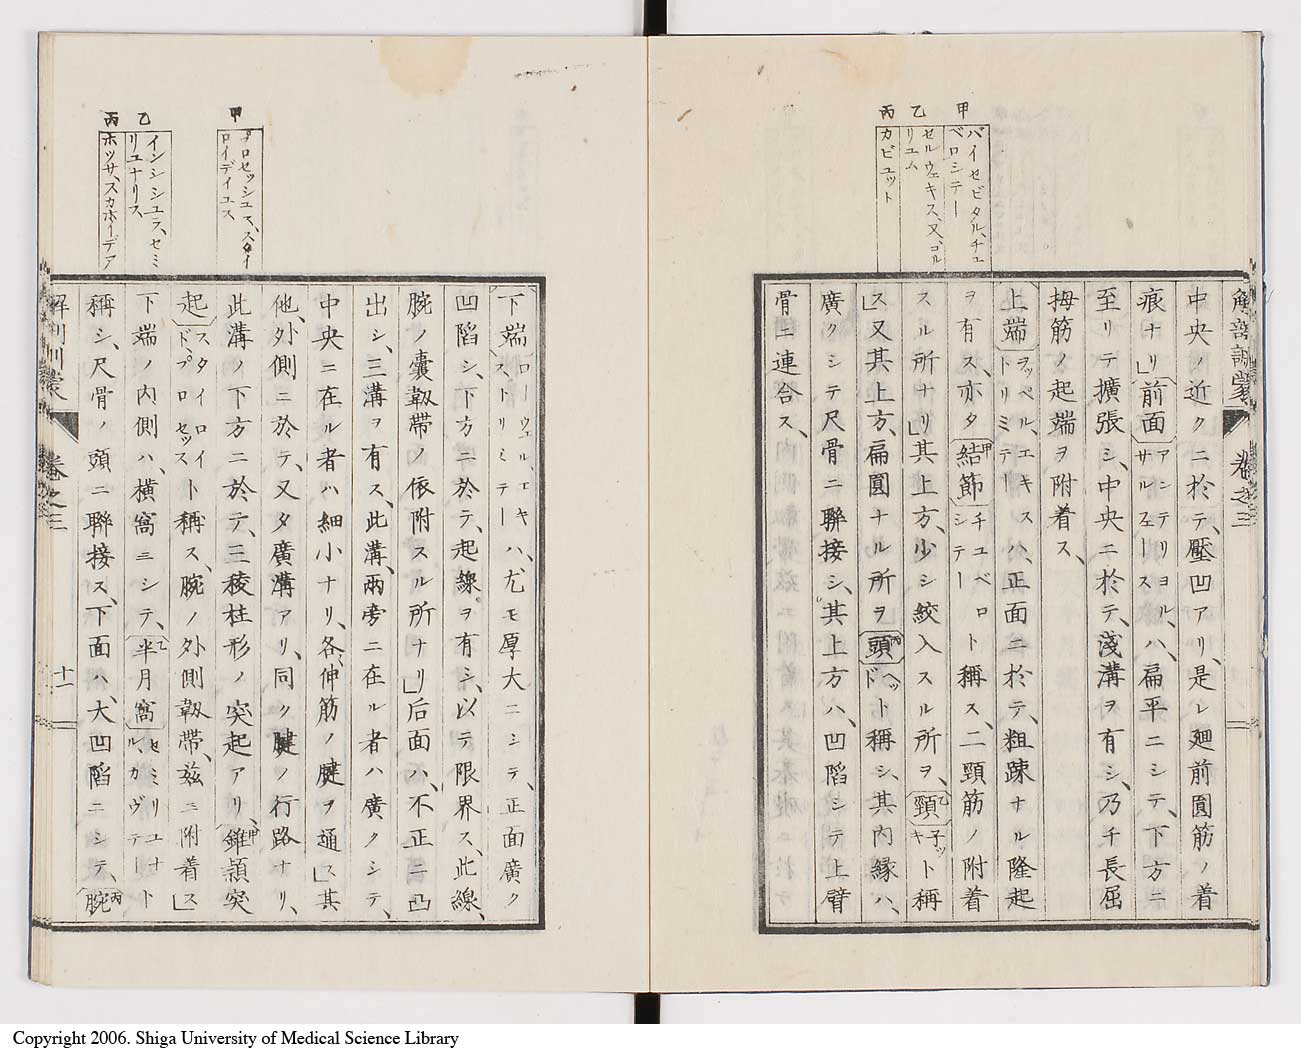 甲
バイセピタル、チュ
ベロシテー
乙
セルウェキス、又、コル
リュム
丙
カピュット
解剖訓蒙
卷之三
中央ノ近クニ於テ、壓凹アリ、是レ廻前圓筋ノ着
痕ナリ」前面アンテリヨル、サルフェースハ、扁平ニシテ、下方ニ
至リテ擴張シ、中央ニ於テ、淺溝ヲ有シ、乃チ長屈
拇筋ノ起端ヲ附着ス、
上端ヲッペル、エキストリミテーハ、正面ニ於テ、粗踈ナル隆起
ヲ有ス、亦タ甲結節チュベロシテート稱ス、二頸筋ノ附着
スル所ナリ」其上方、少シ絞入スル所ヲ、乙頸子ッキト稱
ス」又其上方、扁圓ナル所ヲ丙頭ヘッドト稱シ、其内縁ハ、
廣クシテ尺骨ニ聯接シ、其上方ハ、凹陷シテ上臂
骨ニ連合ス、
甲
プロセッシュス、スタイ
ロイデイユス
乙
インシシュラ、セミ
リュナリス
丙
ホッサ、スカホイデア
下端ローウェル、エキストリミテーハ、尤モ厚大ニシテ、正面廣ク
凹陷シ、下方ニ於テ、起線ヲ有シ、以テ限界ス、此線、
腕ノ囊韌帶ノ依附スル所ナリ」后面ハ、不正ニ凸
出シ、三溝ヲ有ス、此溝、兩旁ニ在ル者ハ廣クシテ、
中央ニ在ル者ハ細小ナリ、各、伸筋ノ腱ヲ通ス」其
他、外側ニ於テ、又タ廣溝アリ、同ク腱ノ行路ナリ、
此溝ノ下方ニ於テ、三稜柱形ノ突起アリ、甲錐頴突
起スタイロイド、プロセッスト稱ス、腕ノ外側韌帶、茲ニ附着ス」
下端ノ内側ハ、横窩ニシテ、乙半月窩セミリュナル、カヴテート
稱シ、尺骨ノ頭ニ聯接ス、下面ハ、大凹陷ニシテ、丙腕
解剖訓蒙
卷之三
十一
Copyright 2006. Shiga University of Medical Science Library